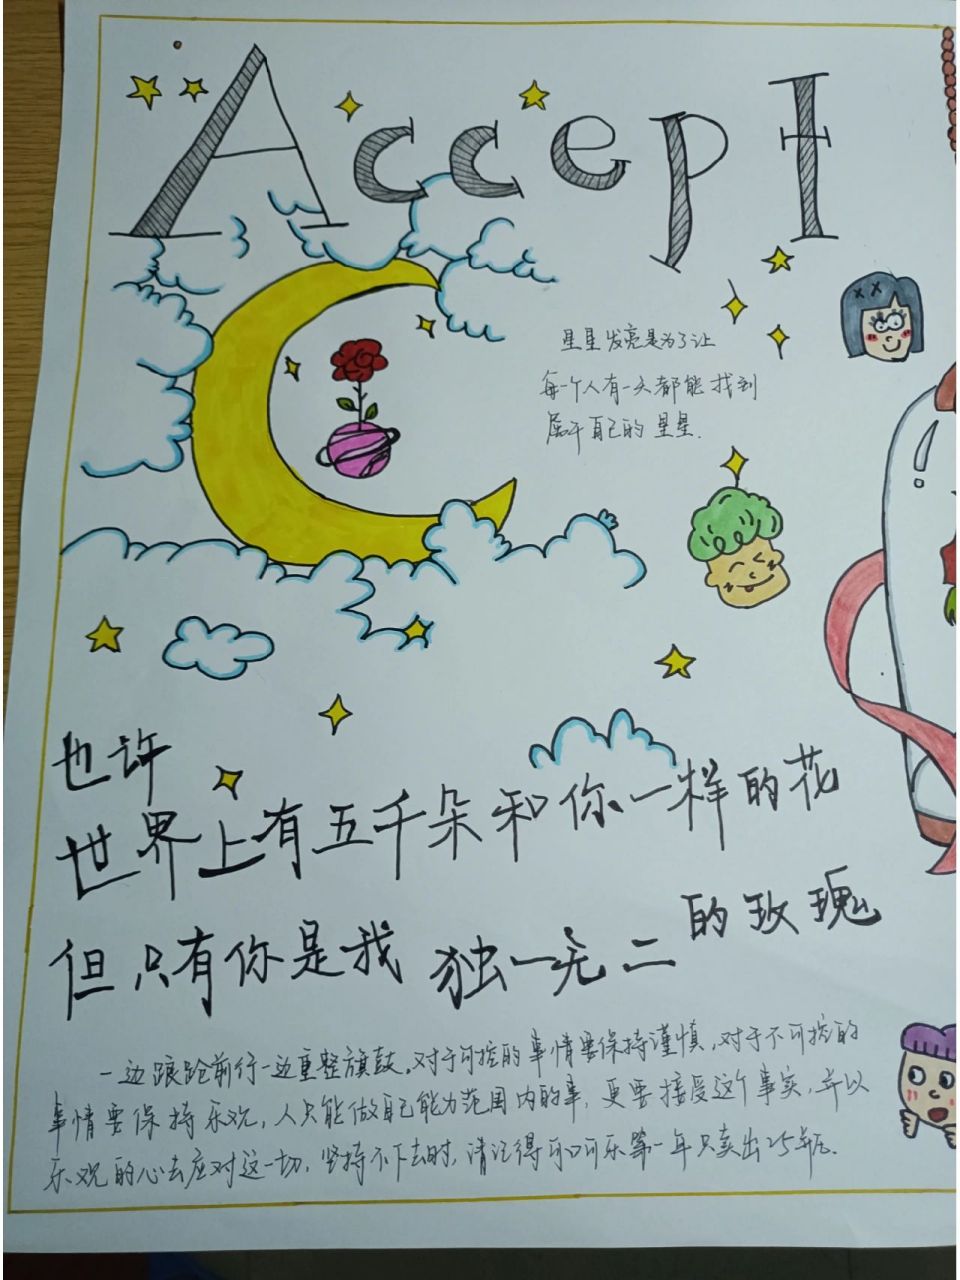 Accept
星星发亮是为了让
每一个人有一天都能找到
属于自己的星星.
也许
世界上有五千朵和你一样的花
但只有你是我独一无二的玫瑰
一边踉跄前行一边重整旗鼓。对于可控的事情要保持谨慎,对于不可控的
事情要保持乐观,人只能做自己能力范围内的事,更要接受这个事实,并以
乐观的心去应对这一切,坚持不下去时,请记得可口可乐第一年只卖出25瓶.